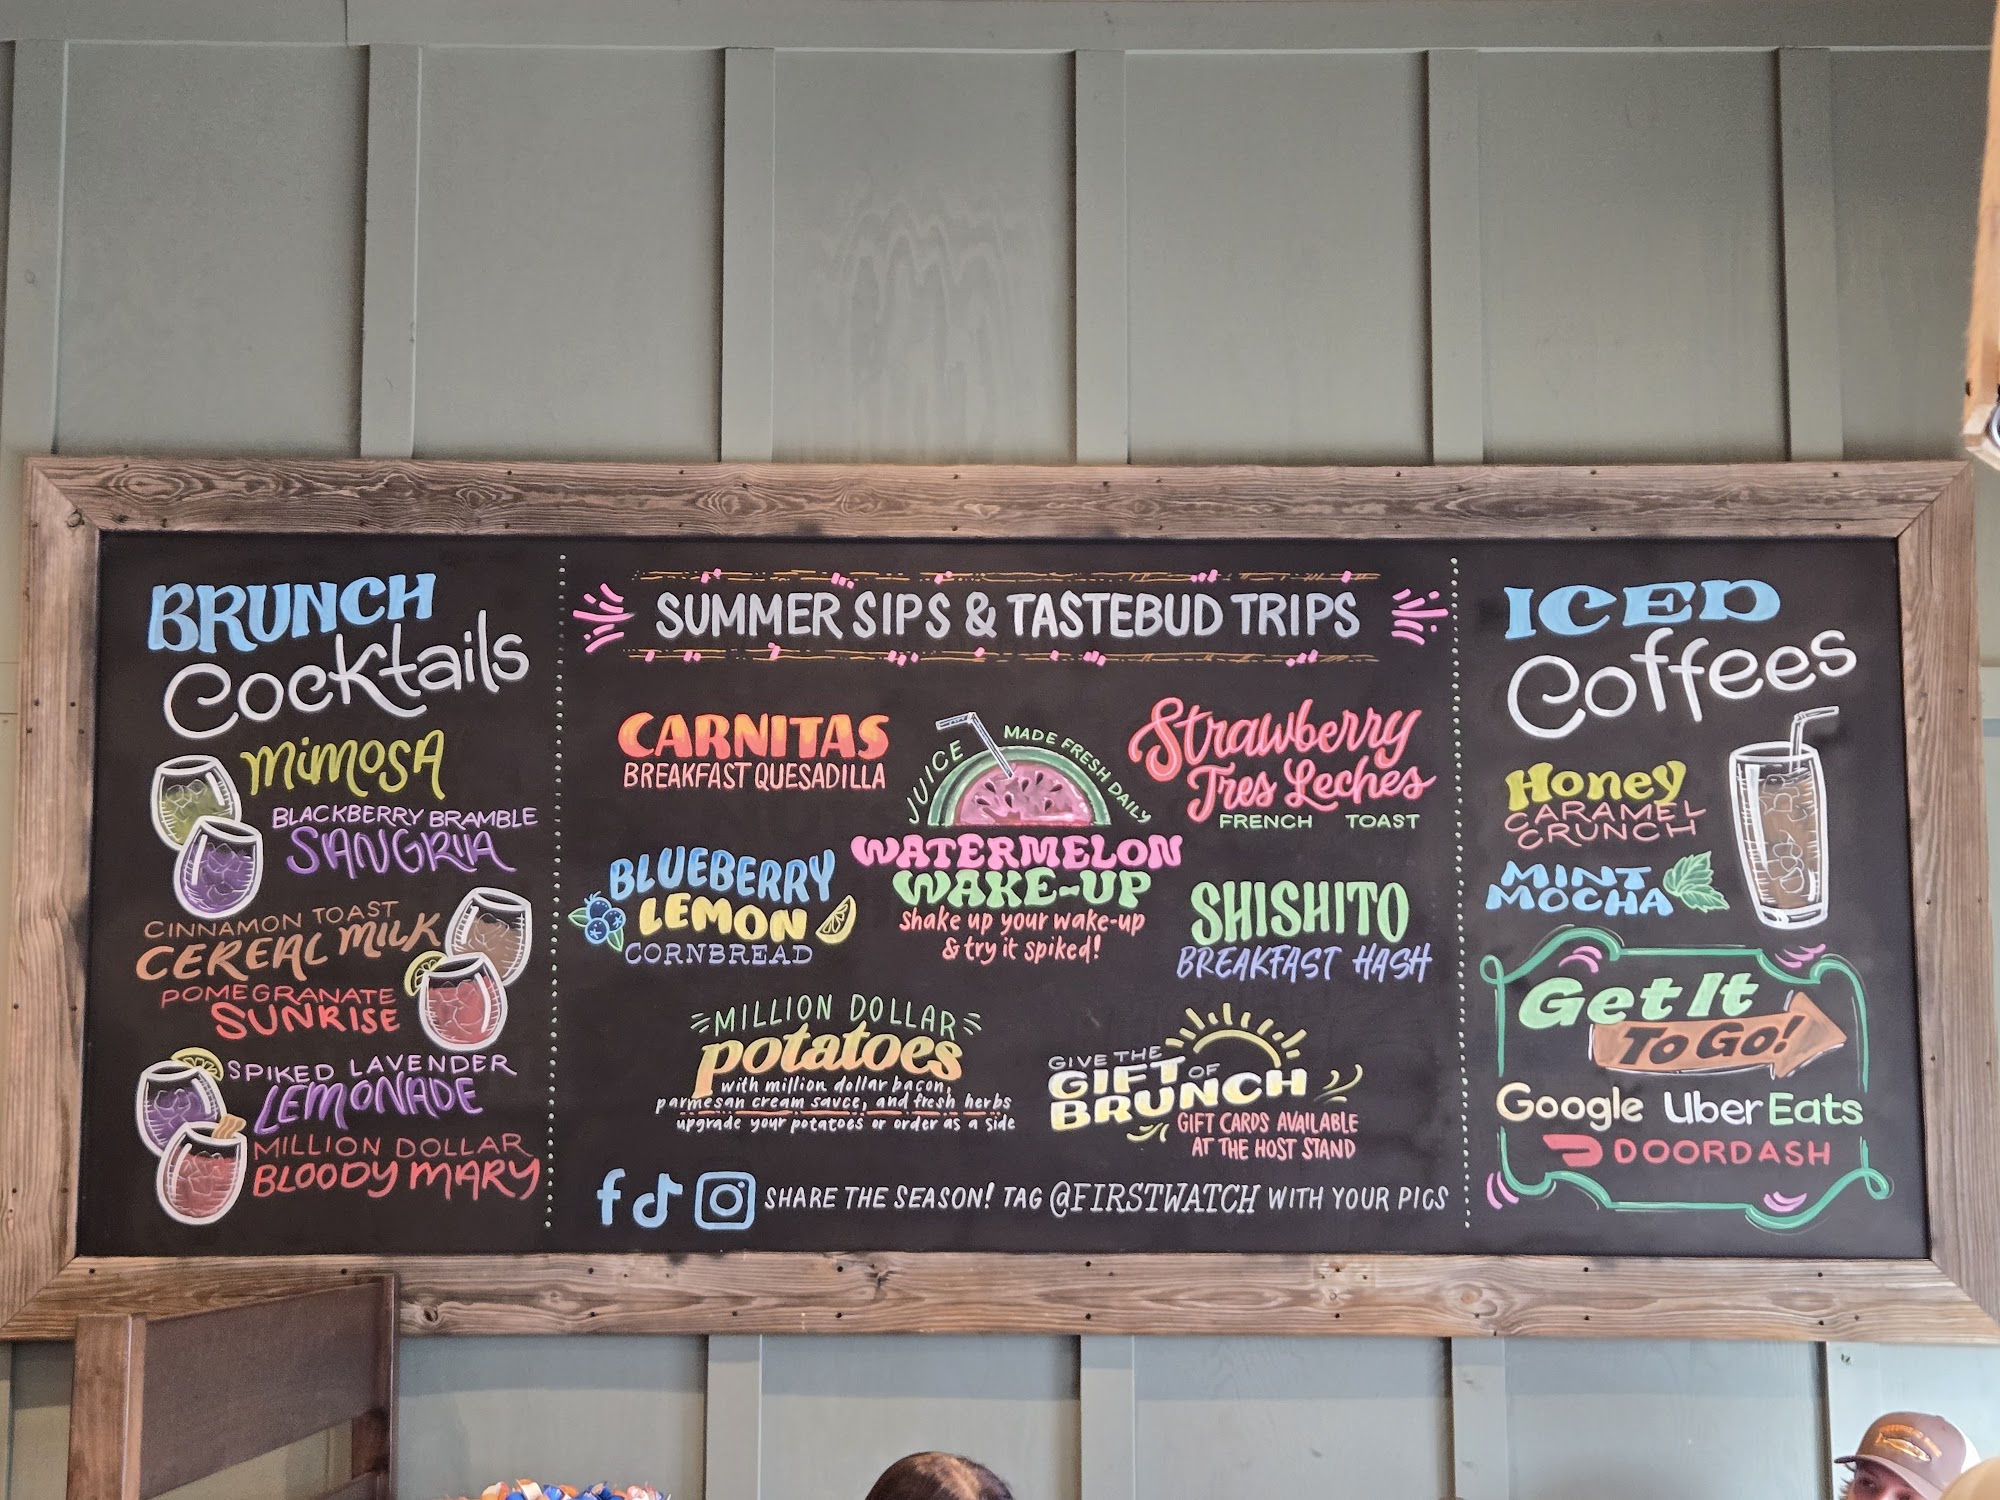 BRUNCH
Cocktails
MIMOSA
BLACKBERRY BRAMBLE
SANGRIA
CINNAMON TOAST
CEREAL MILK
POMEGRANATE
SUNRISE
SPIKED LAVENDER
LEMONADE
MILLION DOLLAR
BLOODY MARY
SUMMER SIPS & TASTEBUD TRIPS
CARNITAS
BREAKFAST QUESADILLA
JUICE MADE FRESH DAILY
WATERMELON
WAKE-UP
shake up your wake-up
& try it spiked!
Strawberry
Tres Leches
FRENCH TOAST
BLUEBERRY
LEMON
CORNBREAD
SHISHITO
BREAKFAST HASH
MILLION DOLLAR
potatoes
with million dollar bacon,
parmesan cream sauce, and fresh herbs
upgrade your potatoes or order as a side
GIVE THE
GIFT OF
BRUNCH
GIFT CARDS AVAILABLE
AT THE HOST STAND
f SHARE THE SEASON! TAG @FIRSTWATCH WITH YOUR PICS
ICED
Coffees
Honey
CARAMEL
CRUNCH
MINT
MOCHA
Get It
To Go!
Google Uber Eats
DOORDASH